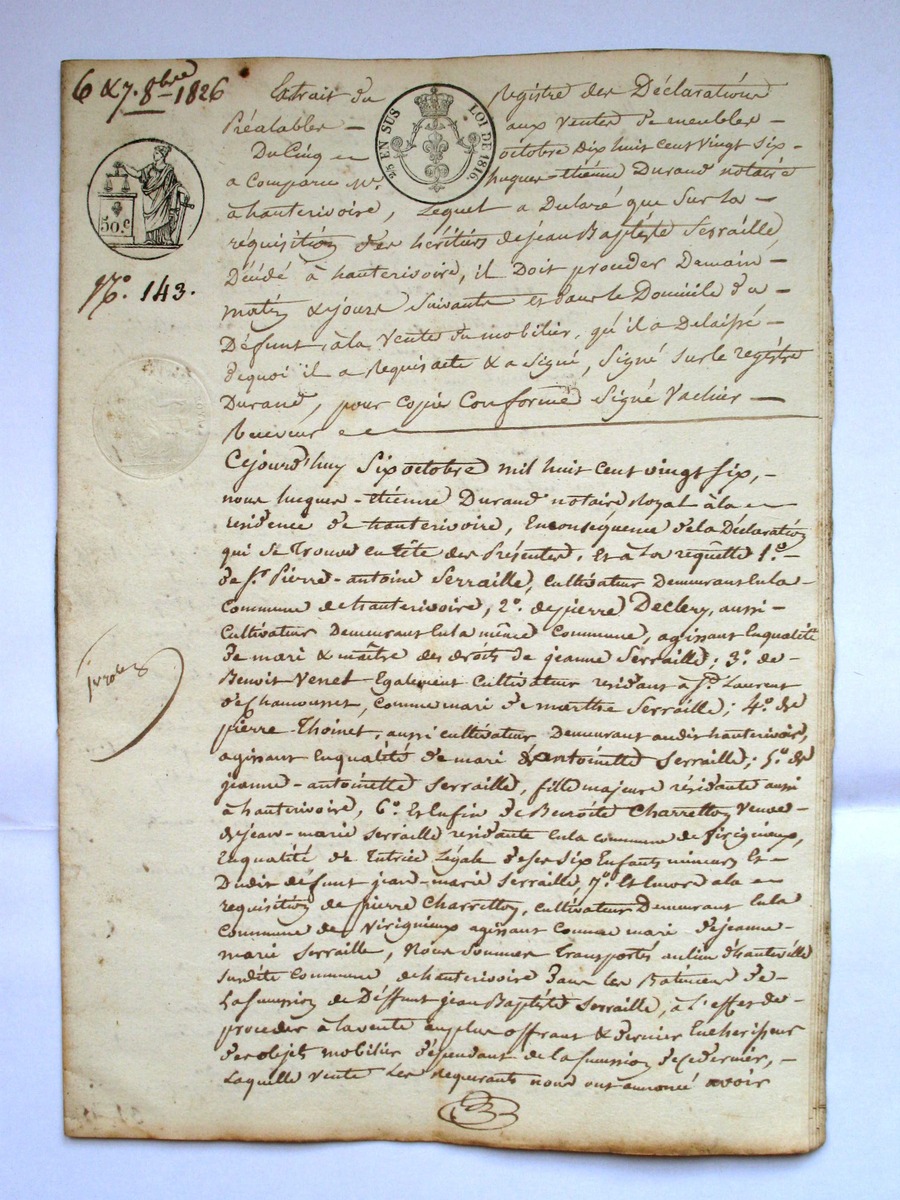 6 & 7. 8bre 1826
Extrait du Registre des Déclarations
Préalables — aux ventes de meubles —
25 EN SUS LOI DE 1816
Du Cinq octobre dix huit cent vingt six —
a Comparu Me. hugues-étiénne Durand notaire
50 c
à hauterivoire, Lequel a Déclaré que Sur la —
réquisition des héritiers de jean Baptiste Serraille
No. 143.
Décédé à hauterivoire, il Doit procéder Demain —
matin & jours Suivants et dans le Domicile du —
Défunt, à la vente du mobilier, qu'il a Delaissé —
de quoi il a Requis acte & a Signé, Signé sur le registre
Durand, pour Copie Conforme Signé Vachier —
Receveur
Cejourd'huy Six octobre mil huit cent vingt six, —
nous hugues-étiénne Durand notaire Royal à la
residence de hauterivoire, En conséquence de la Déclaration
qui se Trouve en tête des Présentes, Et à la requête 1o.
de Sr. Pierre-antoine Serraille, Cultivateur Demeurant En la
Commune de hauterivoire, 2o. de pierre Declery, aussi —
Cultivateur Demeurant En la même Commune, agissant En qualité
de mari & maître des droits de jeanne Serraille; 3o. de —
Benoit Venet Egalement Cultivateur residant à St. Laurent
de Chamousset, Comme mari de marthe Serraille; 4o. de
pierre Thoinet, aussi cultivateur Demeurant audit hauterivoire,
agissant En qualité de mari d'antoinette Serraille; 5o. de
jeanne-antoinette Serraille, fille majeure résidante aussi
à hauterivoire, 6o. Et Enfin de Benoite Charretton Veuve
de jean-marie Serraille residante En la commune de Virigneux,
En qualité de Tutrice Légale de ses Six Enfants mineurs Et
Dudit défunt jean-marie Serraille, 7o. Et Encore a la
requisition de pierre Charretton, Cultivateur Demeurant En la
Commune de Virigneux agissant Comme mari de jeanne
marie Serraille, Nous Sommes Transportés au lieu d'hauteville
Susdite Commune de hauterivoire Dans les Batiments de —
La Succession de Déffunt jean Baptiste Serraille, à l'effet de —
proceder à la vente au plus offrant & dernier Encherisseur
des objets mobilier dépendant de la Succession de ce dernier, —
Laquelle vente Les Requerants nous ont annoncé avoir